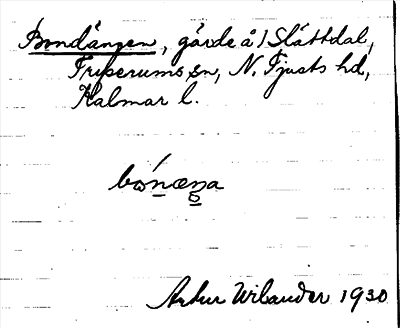 Bondängen, gärde å 1 Slättdal,
Tryserums sn, N. Tjusts hd,
Kalmar l.
Artur Wilander 1930